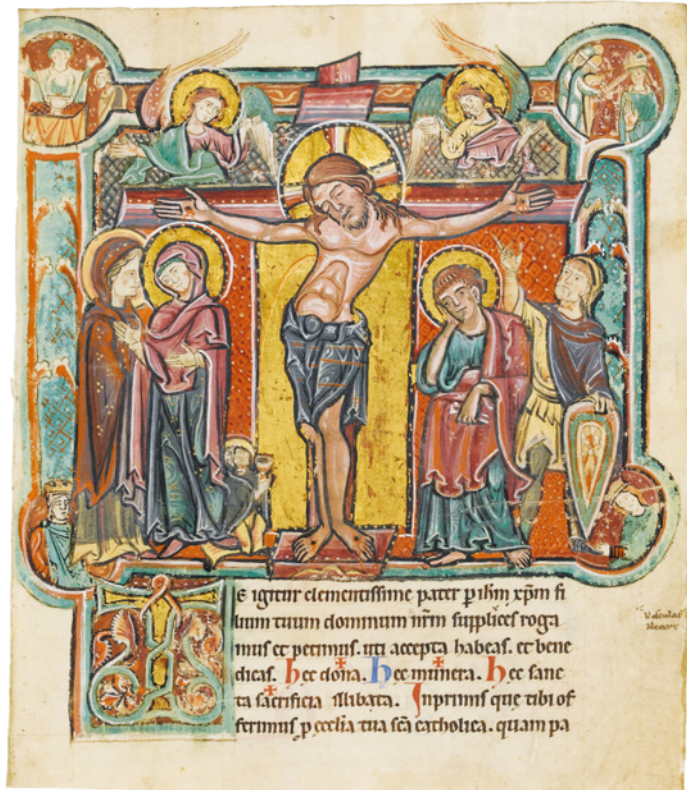 T
E igitur clementissime pater p ihm xpm fi
lium tuum dominum nrm supplices roga
mus et petimus. uti accepta habeas. et bene
dicas. hec dona. hec munera. hec sanc
ta sacrificia illibata. Inprimis que tibi of
ferimus p ecclia tua sca catholica. quam pa